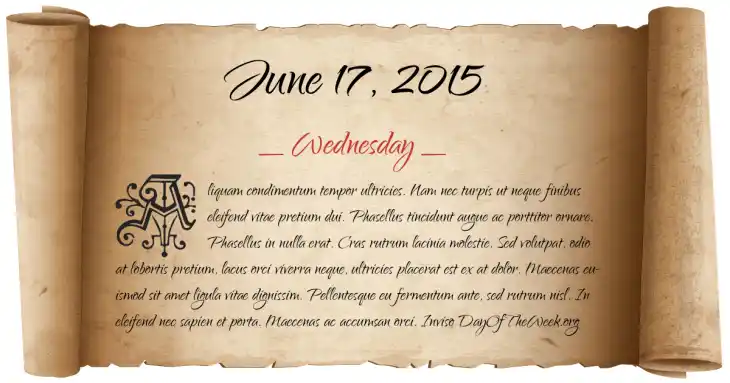 June 17, 2015
— Wednesday —
Aliquam condimentum tempor ultricies. Nam nec turpis ut neque finibus
eleifend vitae pretium dui. Phasellus tincidunt augue ac porttitor ornare.
Phasellus in nulla erat. Cras rutrum lacinia molestie. Sed volutpat, odio
at lobortis pretium, lacus orci viverra neque, ultricies placerat est ex at dolor. Maecenas eu-
ismod sit amet ligula vitae dignissim. Pellentesque eu fermentum ante, sed rutrum nisl. In
eleifend nec sapien et porta. Maecenas ac accumsan orci. Inviso DayOfTheWeek.org